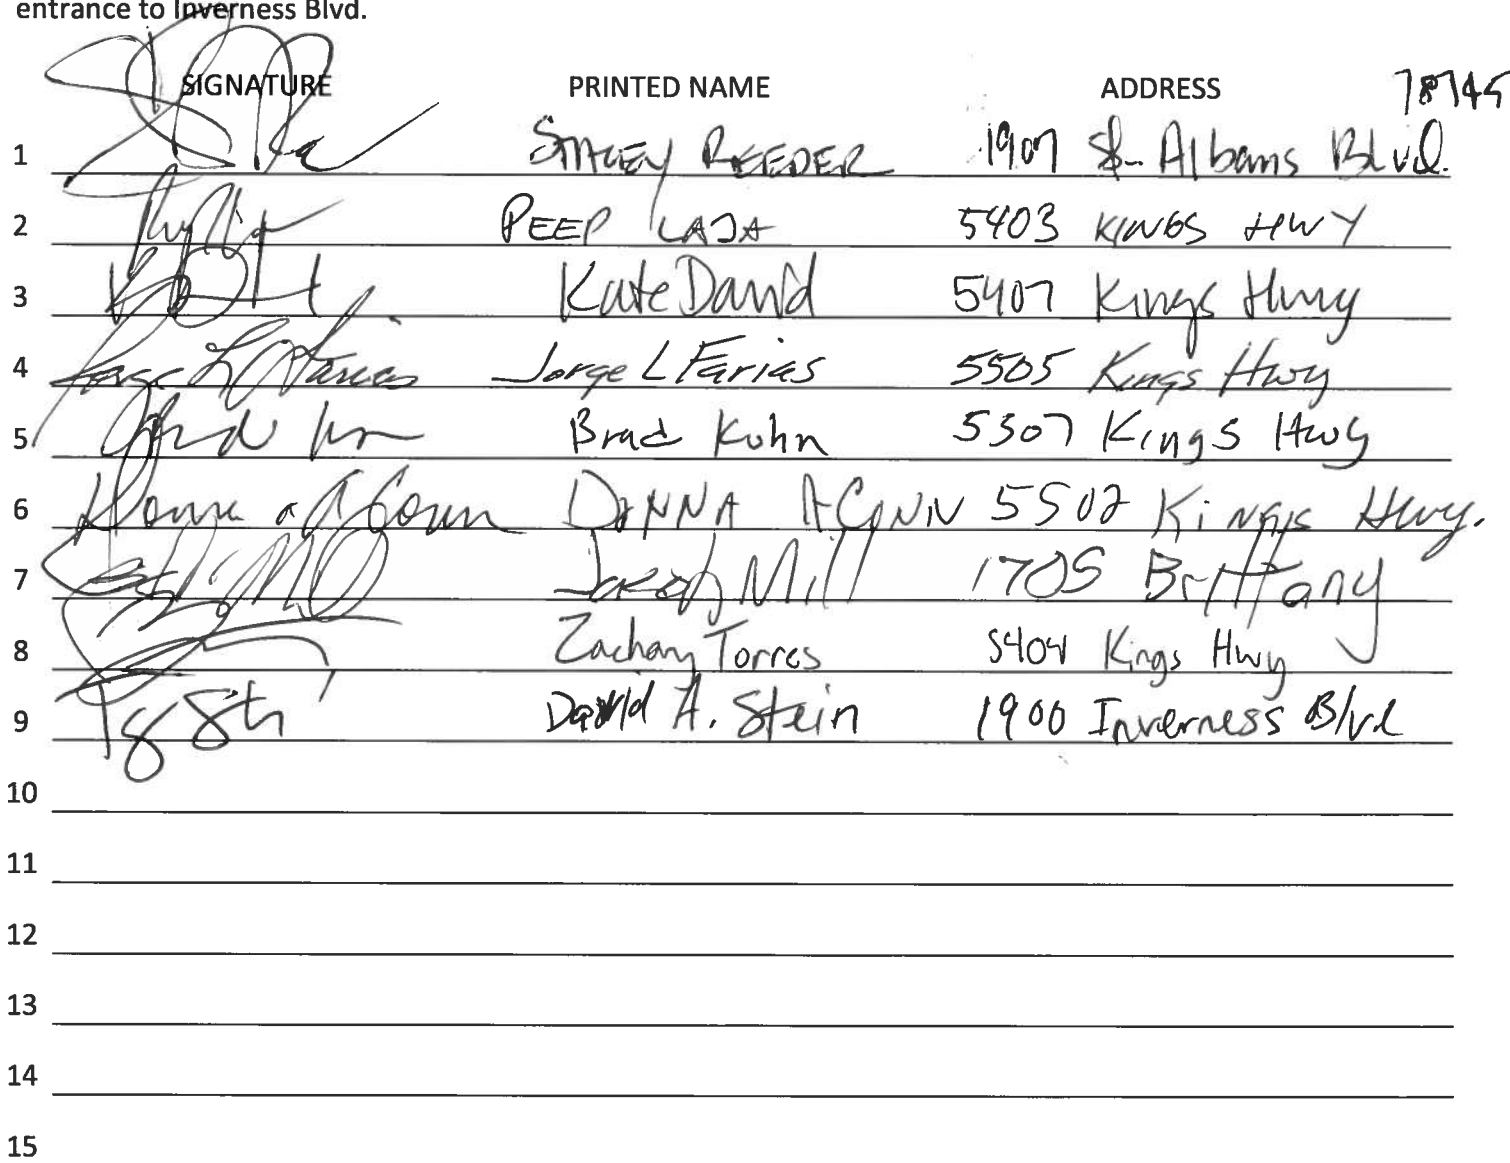 entrance to Inverness Blvd.
SIGNATURE PRINTED NAME ADDRESS 78745
1 STACEY REEDER 1907 St. Albans Blvd.
2 PEEP LAJA 5403 KINGS HWY
3 Kate David 5407 Kings Hwy
4 Jorge L Farias Jorge L Farias 5505 Kings Hwy
5 Brad Kuhn 5307 Kings Hwy
6 Donna DONNA 5502 Kings Hwy.
7 Jacob Mill 1705 Brittany
8 Zachary Torres 5404 Kings Hwy
9 David A. Stein 1900 Inverness Blvd
10
11
12
13
14
15